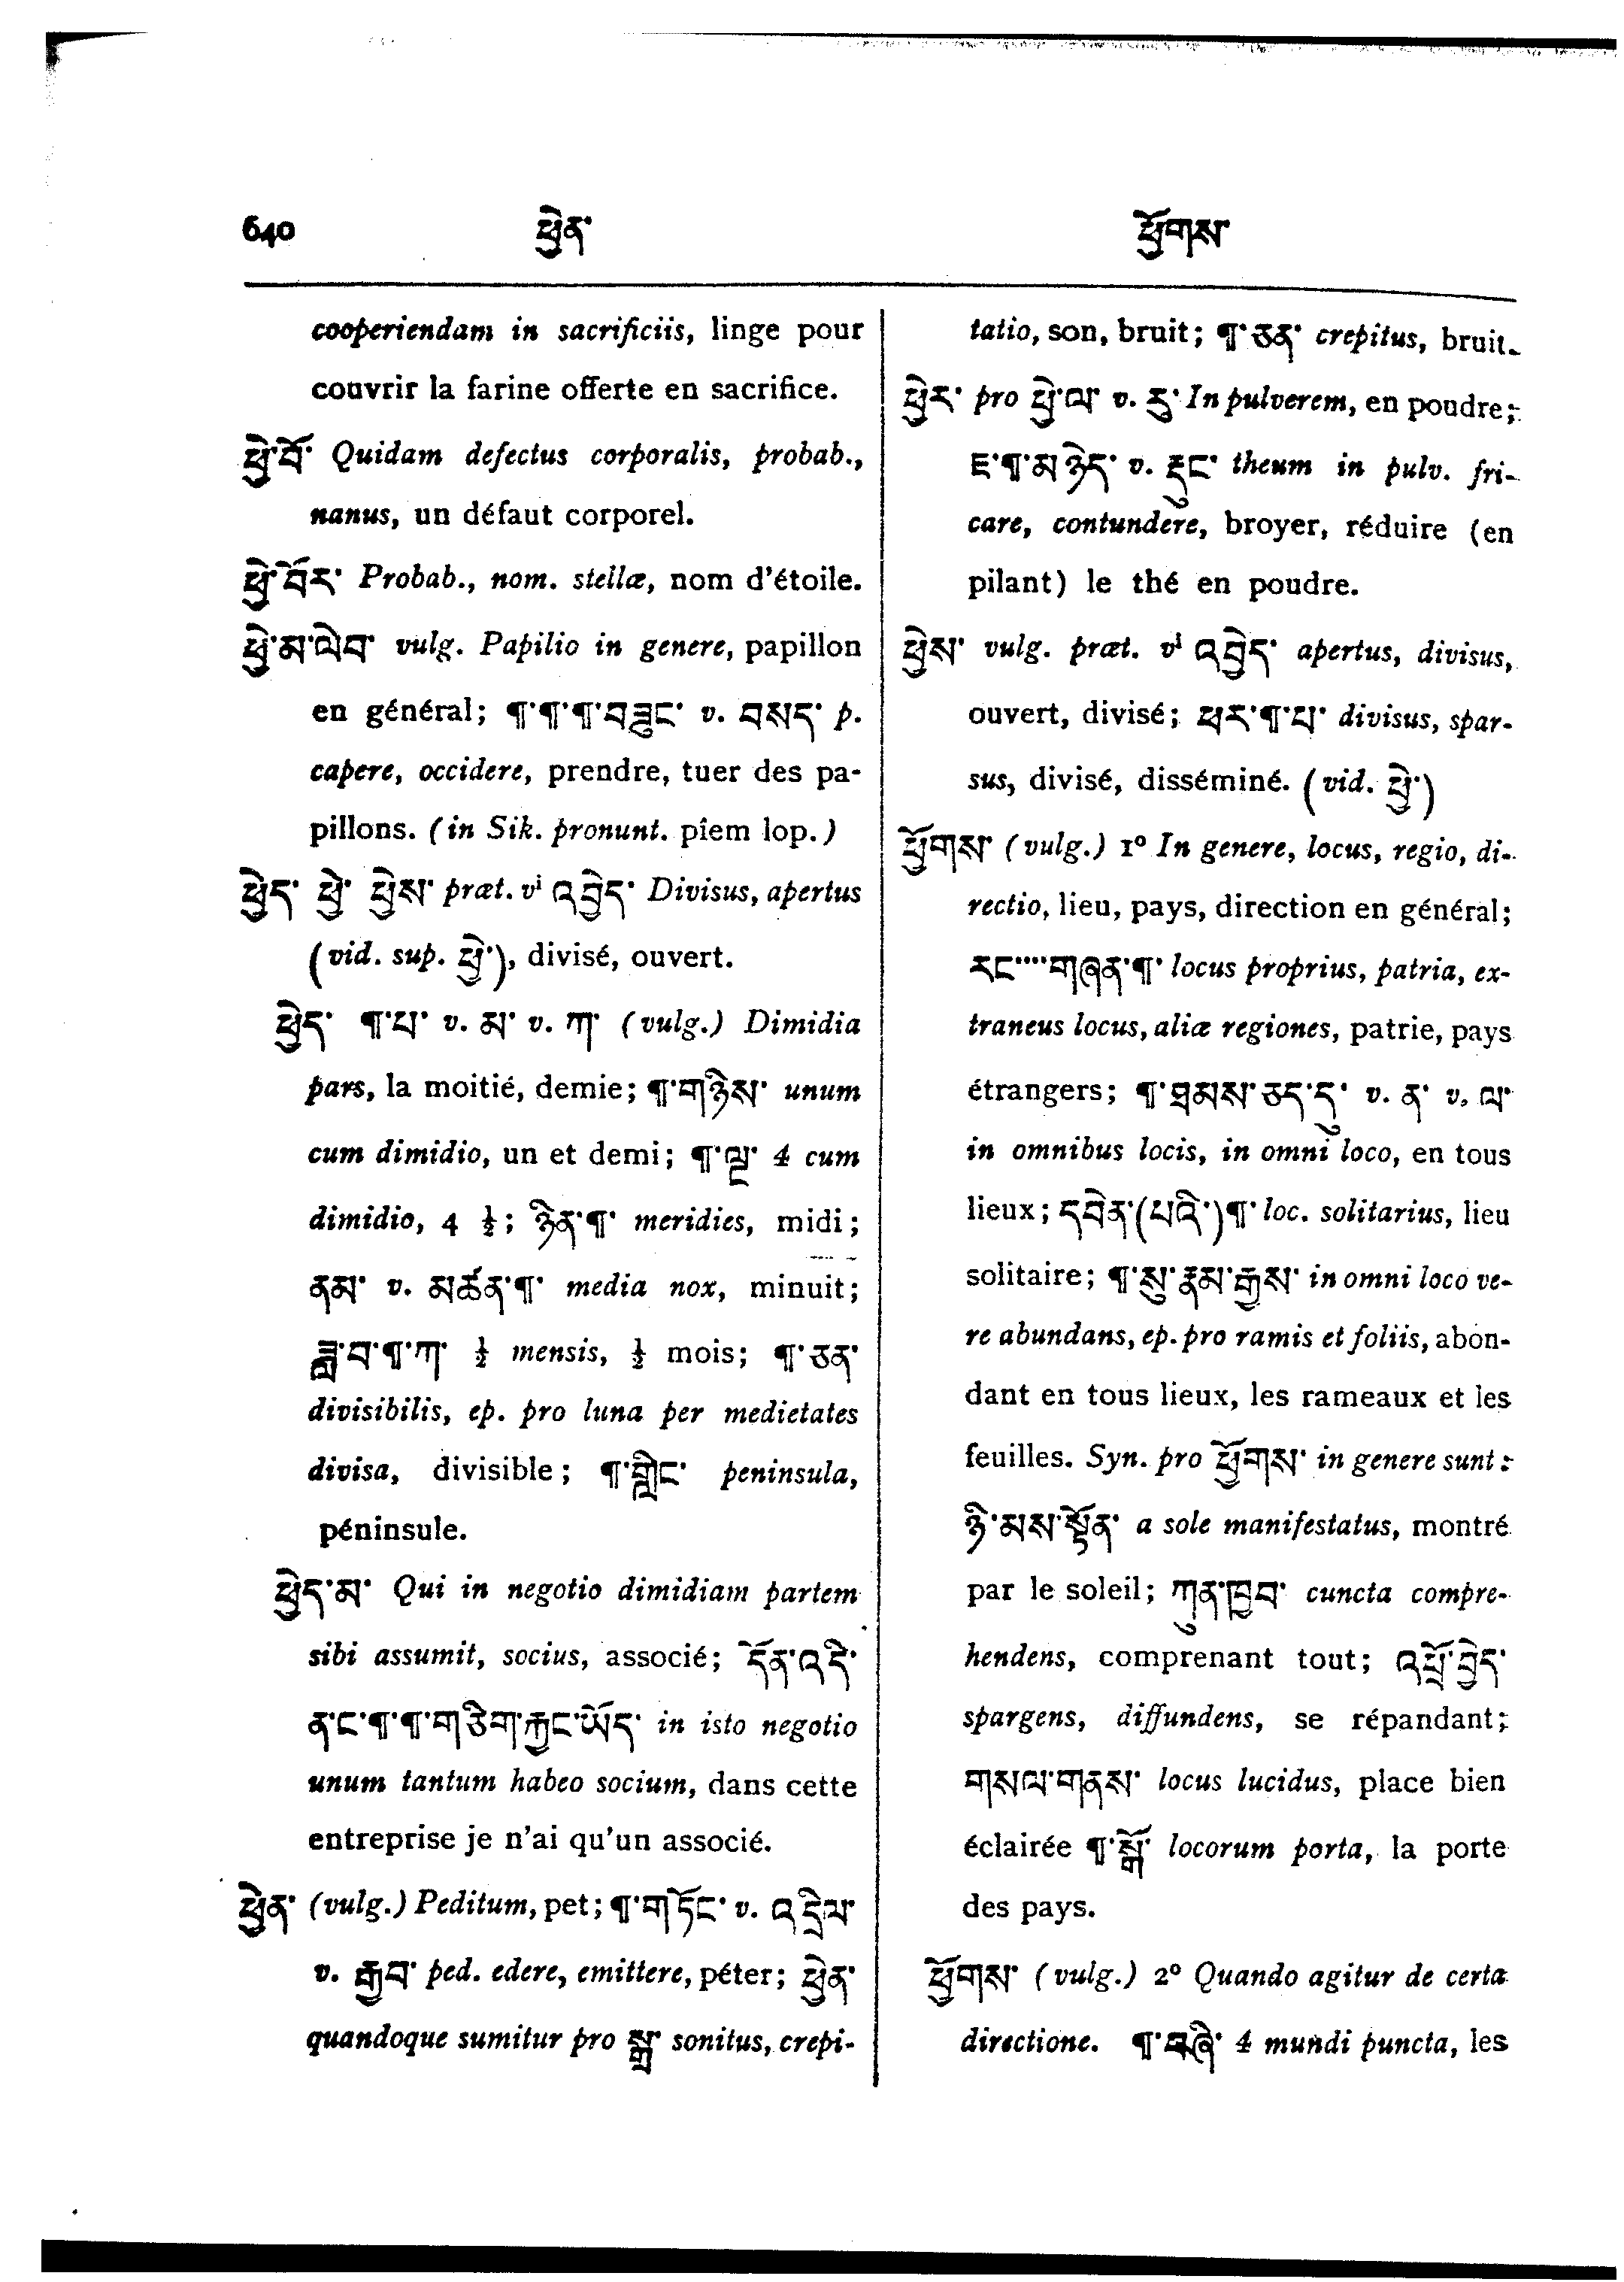 640 ཕྱེན་ ཕྱོགས་
cooperiendam in sacrificiis, linge pour
couvrir la farine offerte en sacrifice.
ཕྱེ་བོ་ Quidam defectus corporalis, probab.,
nanus, un défaut corporel.
ཕྱེ་བོར་ Probab., nom. stellæ, nom d'étoile.
ཕྱེ་མ་ལེབ་ vulg. Papilio in genere, papillon
en général; ¶་¶་¶་བཟུང་ v. བསད་ p.
capere, occidere, prendre, tuer des pa-
pillons. (in Sik. pronunt. pîem lop.)
ཕྱེད་ ཕྱེ་ ཕྱེས་ præt. vi འབྱེད་ Divisus, apertus
(vid. sup. ཕྱེ་), divisé, ouvert.
ཕྱེད་ ¶་པ་ v. མ་ v. ཀ་ (vulg.) Dimidia
pars, la moitié, demie; ¶་གཉིས་ unum
cum dimidio, un et demi; ¶་ལྔ་ 4 cum
dimidio, 4 ½; ཉིན་¶་ meridies, midi;
ནམ་ v. མཚན་¶་ media nox, minuit;
ཟླ་བ་¶་ཀ་ ½ mensis, ½ mois; ¶་ཅན་
divisibilis, ep. pro luna per medietates
divisa, divisible; ¶་གླིང་ peninsula,
péninsule.
ཕྱེད་མ་ Qui in negotio dimidiam partem
sibi assumit, socius, associé; དོན་འདི་
ན་ང་¶་¶་གཅིག་རྐྱང་ཡོད་ in isto negotio
unum tantum habeo socium, dans cette
entreprise je n'ai qu'un associé.
ཕྱེན་ (vulg.) Peditum, pet; ¶་གཏོང་ v. འདྲིལ་
v. རྒྱབ་ ped. edere, emittere, péter; ཕྱེན་
quandoque sumitur pro སྒྲ་ sonitus, crepi-
tatio, son, bruit; ¶་ཅན་ crepitus, bruit.
ཕྱེར་ pro ཕྱེ་ལ་ v. རུ་ In pulverem, en poudre;
ཇ་¶་མཉེད་ v. རྡུང་ theum in pulv. fri-
care, contundere, broyer, réduire (en
pilant) le thé en poudre.
ཕྱེས་ vulg. præt. vi འབྱེད་ apertus, divisus,
ouvert, divisé; ཕར་¶་པ་ divisus, spar-
sus, divisé, disséminé. (vid. ཕྱེ་)
ཕྱོགས་ (vulg.) 1º In genere, locus, regio, di-
rectio, lieu, pays, direction en général;
རང་་་་གཞན་¶་ locus proprius, patria, ex-
traneus locus, aliæ regiones, patrie, pays
étrangers; ¶་ཐམས་ཅད་དུ་ v. ན་ v. ལ་
in omnibus locis, in omni loco, en tous
lieux; དབེན་(པའི་)¶་ loc. solitarius, lieu
solitaire; ¶་སུ་རྣམ་རྒྱས་ in omni loco ve-
re abundans, ep. pro ramis et foliis, abon-
dant en tous lieux, les rameaux et les
feuilles. Syn. pro ཕྱོགས་ in genere sunt:
ཉི་མས་སྟོན་ a sole manifestatus, montré
par le soleil; ཀུན་ཁྱབ་ cuncta compre-
hendens, comprenant tout; འཕྲོ་བྱེད་
spargens, diffundens, se répandant;
གསལ་གནས་ locus lucidus, place bien
éclairée ¶་སྒོ་ locorum porta, la porte
des pays.
ཕྱོགས་ (vulg.) 2º Quando agitur de certa
directione. ¶་བཞི་ 4 mundi puncta, les